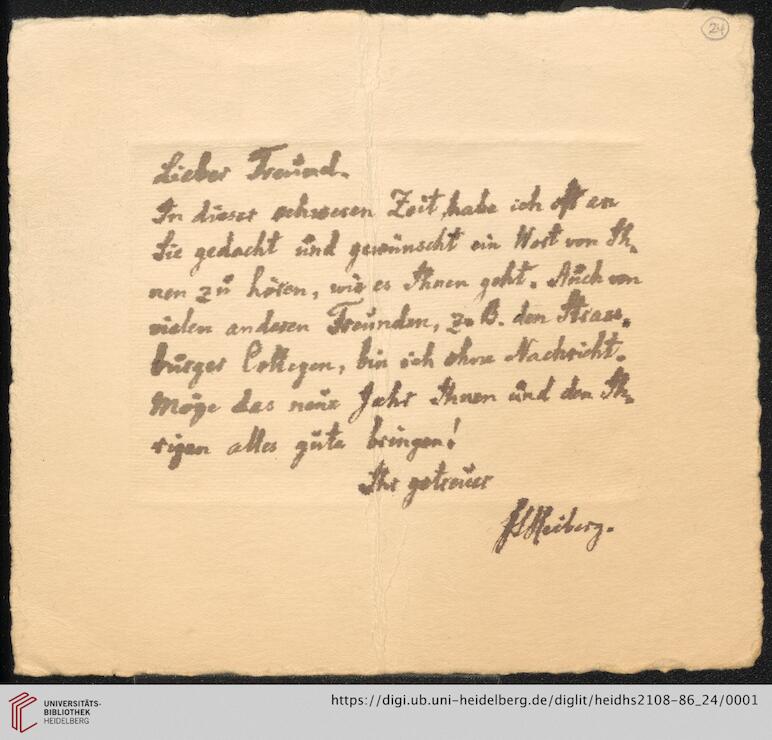 24
Lieber Freund.
In dieser schweren Zeit habe ich oft an
Sie gedacht und gewünscht ein Wort von Ih-
nen zu hören, wie es Ihnen geht. Auch von
vielen anderen Freunden, z. B. den Strass-
burger Collegen, bin ich ohne Nachricht.
Möge das neue Jahr Ihnen und den Ih-
rigen alles gute bringen!
Ihr getreuer
JLHeiberg.
UNIVERSITÄTS-
BIBLIOTHEK
HEIDELBERG
https://digi.ub.uni-heidelberg.de/diglit/heidhs2108-86_24/0001